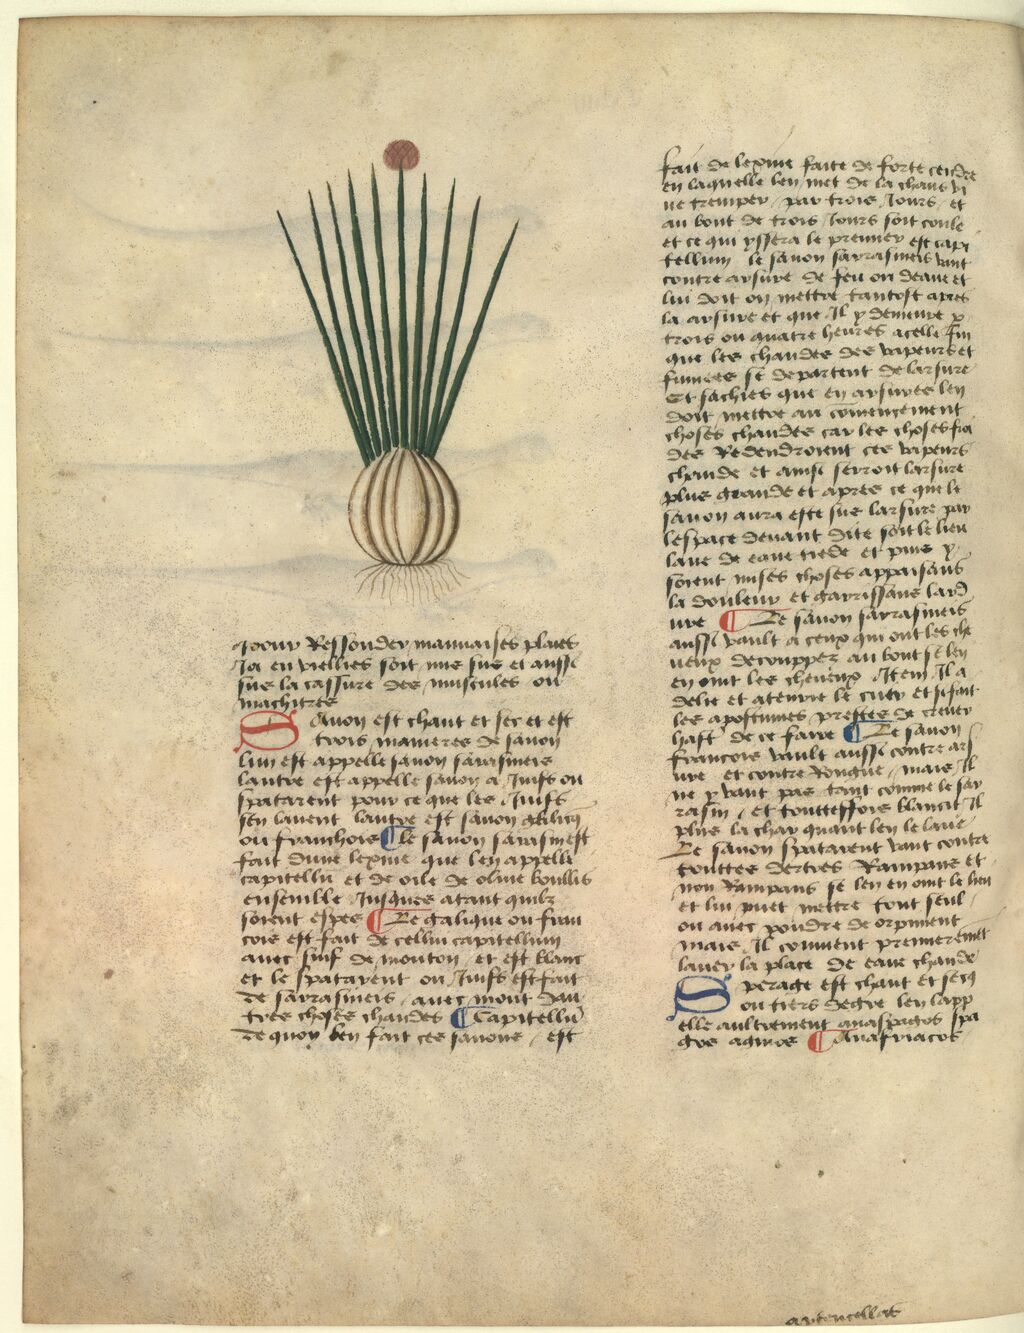 pour Ressouder mauuaises plaies
Ja en viellies soit mis sus et aussi
sus la cassure des muscules ou
machitres
Sauon est chaut et sec et est
trois manieres de sauon
lun est appelle sauon sarasineis
lautre est appelle sauon a Juifs ou
spatarent pour ce que les Juifs
sen lauent lautre est sauon
ou franchois ¶ le sauon sarasin est
fait dune lexiue que len appelle
capitellu et de oile de oliue boullis
ensemble Jusques atant quilz
soient espes ¶ Le galique ou fran
cois est fait de cellui capitellum
auec suif de mouton et est blanc
et le spatarent ou Juifs est fait
de sarrasineis auec mout dau
tres choses chaudes ¶ Capitellu
de quoy len fait ces sauons / est
fait de lexiue faite de forte cendre
en laquelle len met de la chaus vi
ue tremper par trois Jours et
au bout de trois Jours soit coule
et ce qui yssera le premier est capi
tellum le sauon sarrasineis vaut
contre arsure de feu ou deaue et
lui doit on mettre tantost apres
la arsure et que Il y demeure
trois ou quatre heures acelle fin
que les chaudes des vapeurs et
fumees se departent de larsure
Et sachies que en arsures len
doit mettre au comencement
choses chaudes car les choses froi
des Redendroient ces vapeurs
chaude et ainsi seroit larsure
plus grande et apres ce que le
sauon aura este sus larsure par
lespace deuant dite soit le lieu
laue de eaue tiede et puis y
soient mises choses appaisans
la douleur et garissans lard
ure ¶ Le sauon sarrasineis
aussi vault a ceux qui ont les che
ueux decouppez au bout se len
en oint les cheueux Item Il a
delie et atenurie le cuer et si fait
les apostumes prestes de creuer
hast de ce faire ¶ Le sauon
francois vault aussi contre ars
ure et contre Rongne / mais Il
ne y vaut pas tant comme le sar
rasin / et touttesfois blancit Il
plus la char quant len le laue
Le sauon spatarent vaut contre
touttes dertres Rampans et
non Rampans se len en oint le lieu
et lui puet mettre tout seul
ou auec poudre de orpiment
mais Il conuient premierement
lauer la place de eaue chaude
Sperage est chaut et secq
ou tiers degre len lapp
elle aultrement
¶